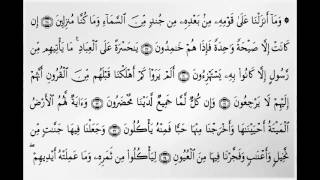 ۞ وَمَا أَنزَلْنَا عَلَىٰ قَوْمِهِۦ مِنۢ بَعْدِهِۦ مِن جُندٍ مِّنَ ٱلسَّمَآءِ وَمَا كُنَّا مُنزِلِينَ ٢٨ إِن
كَانَتْ إِلَّا صَيْحَةً وَٰحِدَةً فَإِذَا هُمْ خَٰمِدُونَ ٢٩ يَٰحَسْرَةً عَلَى ٱلْعِبَادِ مَا يَأْتِيهِم مِّن
رَّسُولٍ إِلَّا كَانُوا۟ بِهِۦ يَسْتَهْزِءُونَ ٣٠ أَلَمْ يَرَوْا۟ كَمْ أَهْلَكْنَا قَبْلَهُم مِّنَ ٱلْقُرُونِ أَنَّهُمْ
إِلَيْهِمْ لَا يَرْجِعُونَ ٣١ وَإِن كُلٌّ لَّمَّا جَمِيعٌ لَّدَيْنَا مُحْضَرُونَ ٣٢ وَءَايَةٌ لَّهُمُ ٱلْأَرْضُ
ٱلْمَيْتَةُ أَحْيَيْنَٰهَا وَأَخْرَجْنَا مِنْهَا حَبًّا فَمِنْهُ يَأْكُلُونَ ٣٣ وَجَعَلْنَا فِيهَا جَنَّٰتٍ مِّن
نَّخِيلٍ وَأَعْنَٰبٍ وَفَجَّرْنَا فِيهَا مِنَ ٱلْعُيُونِ ٣٤ لِيَأْكُلُوا۟ مِن ثَمَرِهِۦ وَمَا عَمِلَتْهُ أَيْدِيهِمْ ۖ